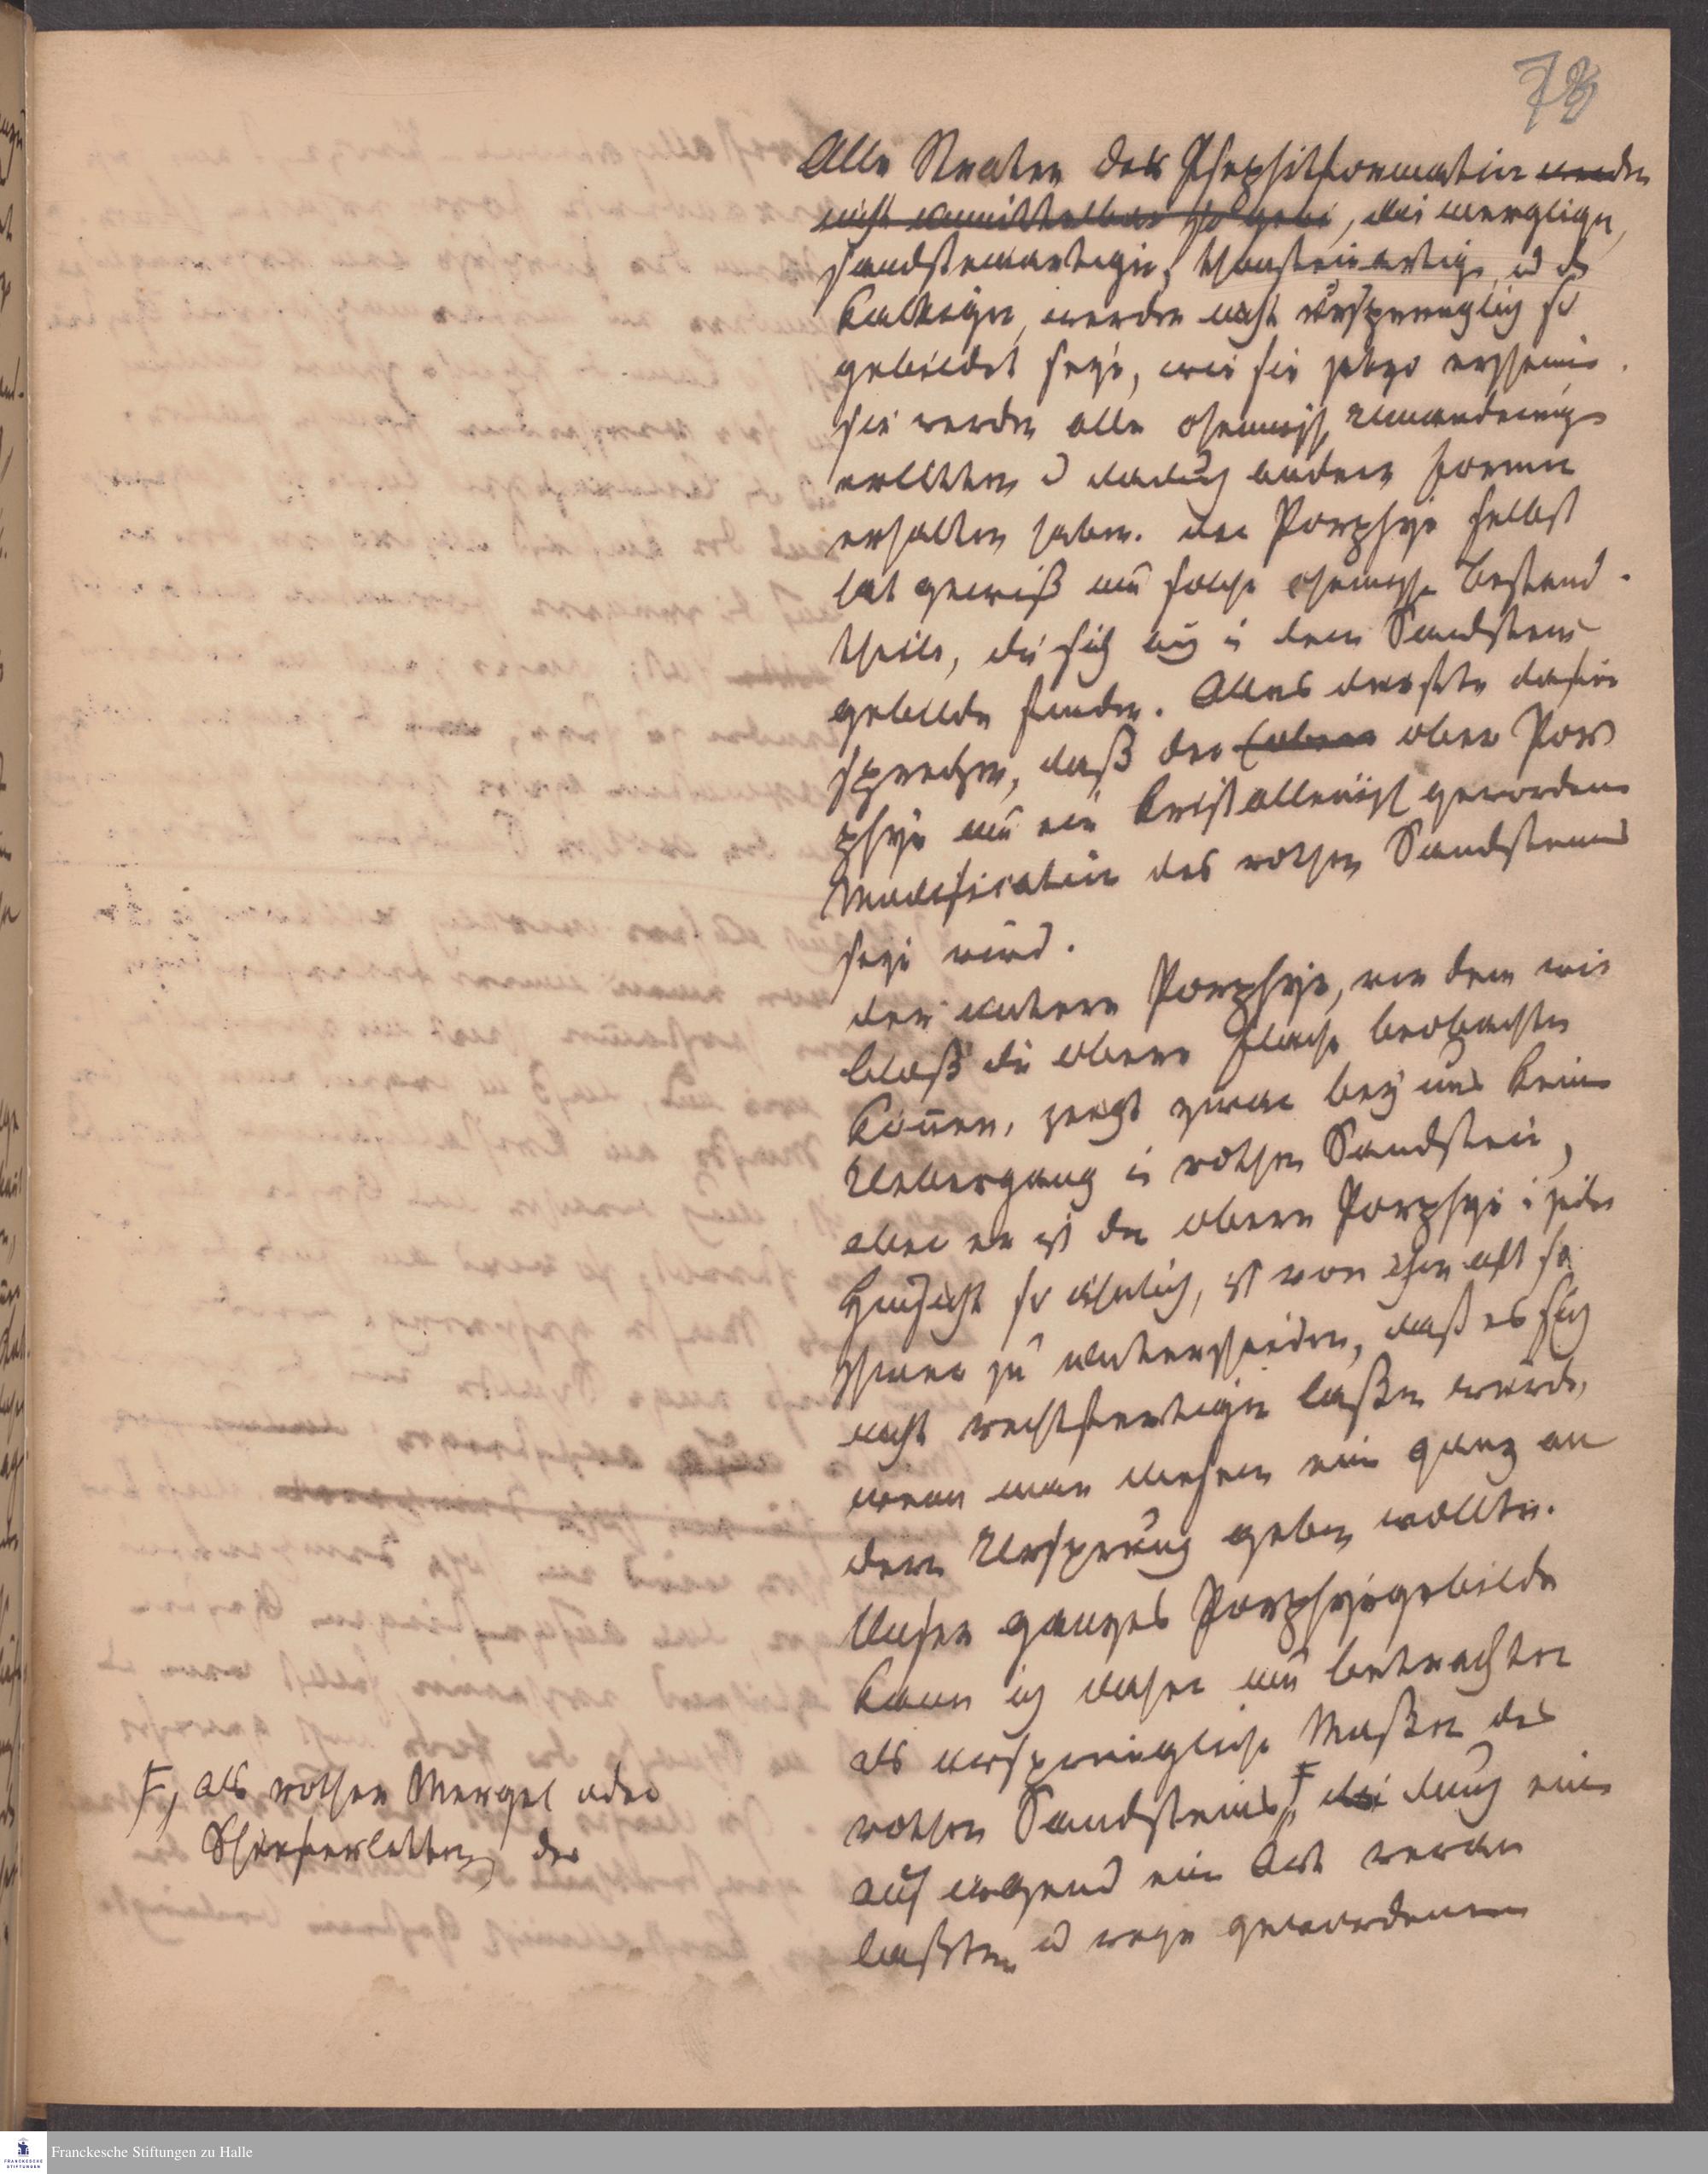 78
Alle Straten der Psephitformation werden
nicht unmittelbar so gebi, die mergligen,
sandsteinartigen, thonsteinartige, u d
kalkigen, werden nicht ursprünglich so
gebildet seyn, wie sie jetzo erscheinen.
sie werden alle chemische Umänderung
erlitten u dadurch andere Formen
erhalten haben. der Porphyr selbst
hat gewiß nur solche chemische Bestand-
theile, die sich auch in dem Sandstein
gebilde finden. Alles dürfte dafür
sprechen, daß der obere Por
phyr nur eine kristallinisch gewordene
Modification des rothen Sandsteins
seyn wird.
der untere Porphyr, von dem wir
bloß die obere Fläche beobachten
können, zeigt zwar bey uns keinen
Uebergang in rothen Sandstein,
aber er ist dem obern Porphyr in jeder
Hinsicht so ähnlich, ist von ihm oft so
schwer zu unterscheiden, daß es sich
nicht rechtfertigen laßen würde,
wenn man diesem einen ganz an
dern Ursprung geben wollte.
Unser ganzes Porphyrgebilde
kann ich daher nur betrachten
als ursprüngliche Maßen des
rothen Sandsteins, F die durch eine
auf irgend eine Art veran
laßten u rege gewordenen
F, als rothen Mergel oder
Schieferletten, der
Franckesche Stiftungen zu Halle